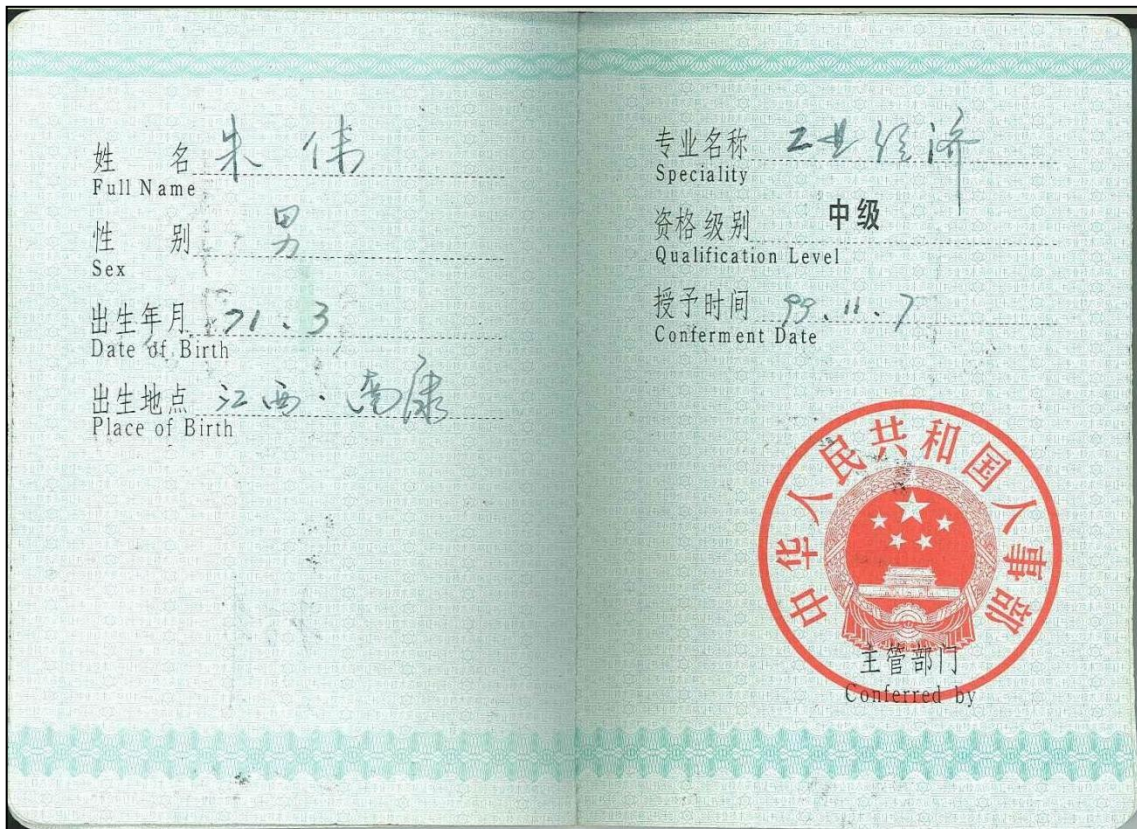 姓 名 朱 伟
Full Name
性 别 男
Sex
出生年月 71.3
Date of Birth
出生地点 江西·南康
Place of Birth
专业名称 工业经济
Speciality
资格级别 中级
Qualification Level
授予时间 99.11.7
Conferment Date
中华人民共和国人事部
主管部门
Conferred by